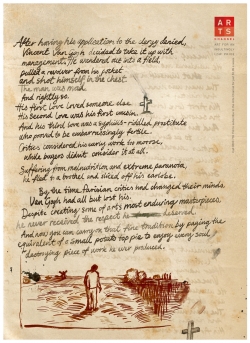 After having his application to the clergy denied,
Vincent Van Gogh decided to take it up with
management. He wandered out into a field,
pulled a revolver from his pocket
and shot himself in the chest.
The man was mad.
And rightly so.
His first love loved someone else.
His second love was his first cousin.
And his third love was a syphilis-riddled prostitute
who proved to be unnervingly fertile.
Critics considered his early work too morose,
while buyers didn't consider it at all.
Suffering from malnutrition and extreme paranoia,
he fled to a brothel and sliced off his earlobe.
By the time Parisian critics had changed their minds,
Van Gogh had all but lost his.
Despite creating some of art's most enduring masterpieces,
he never received the respect he deserved.
And now you can carry on that fine tradition by paying the
equivalent of a small potato top pie to enjoy every soul
destroying piece of work he ever produced.
ARTS